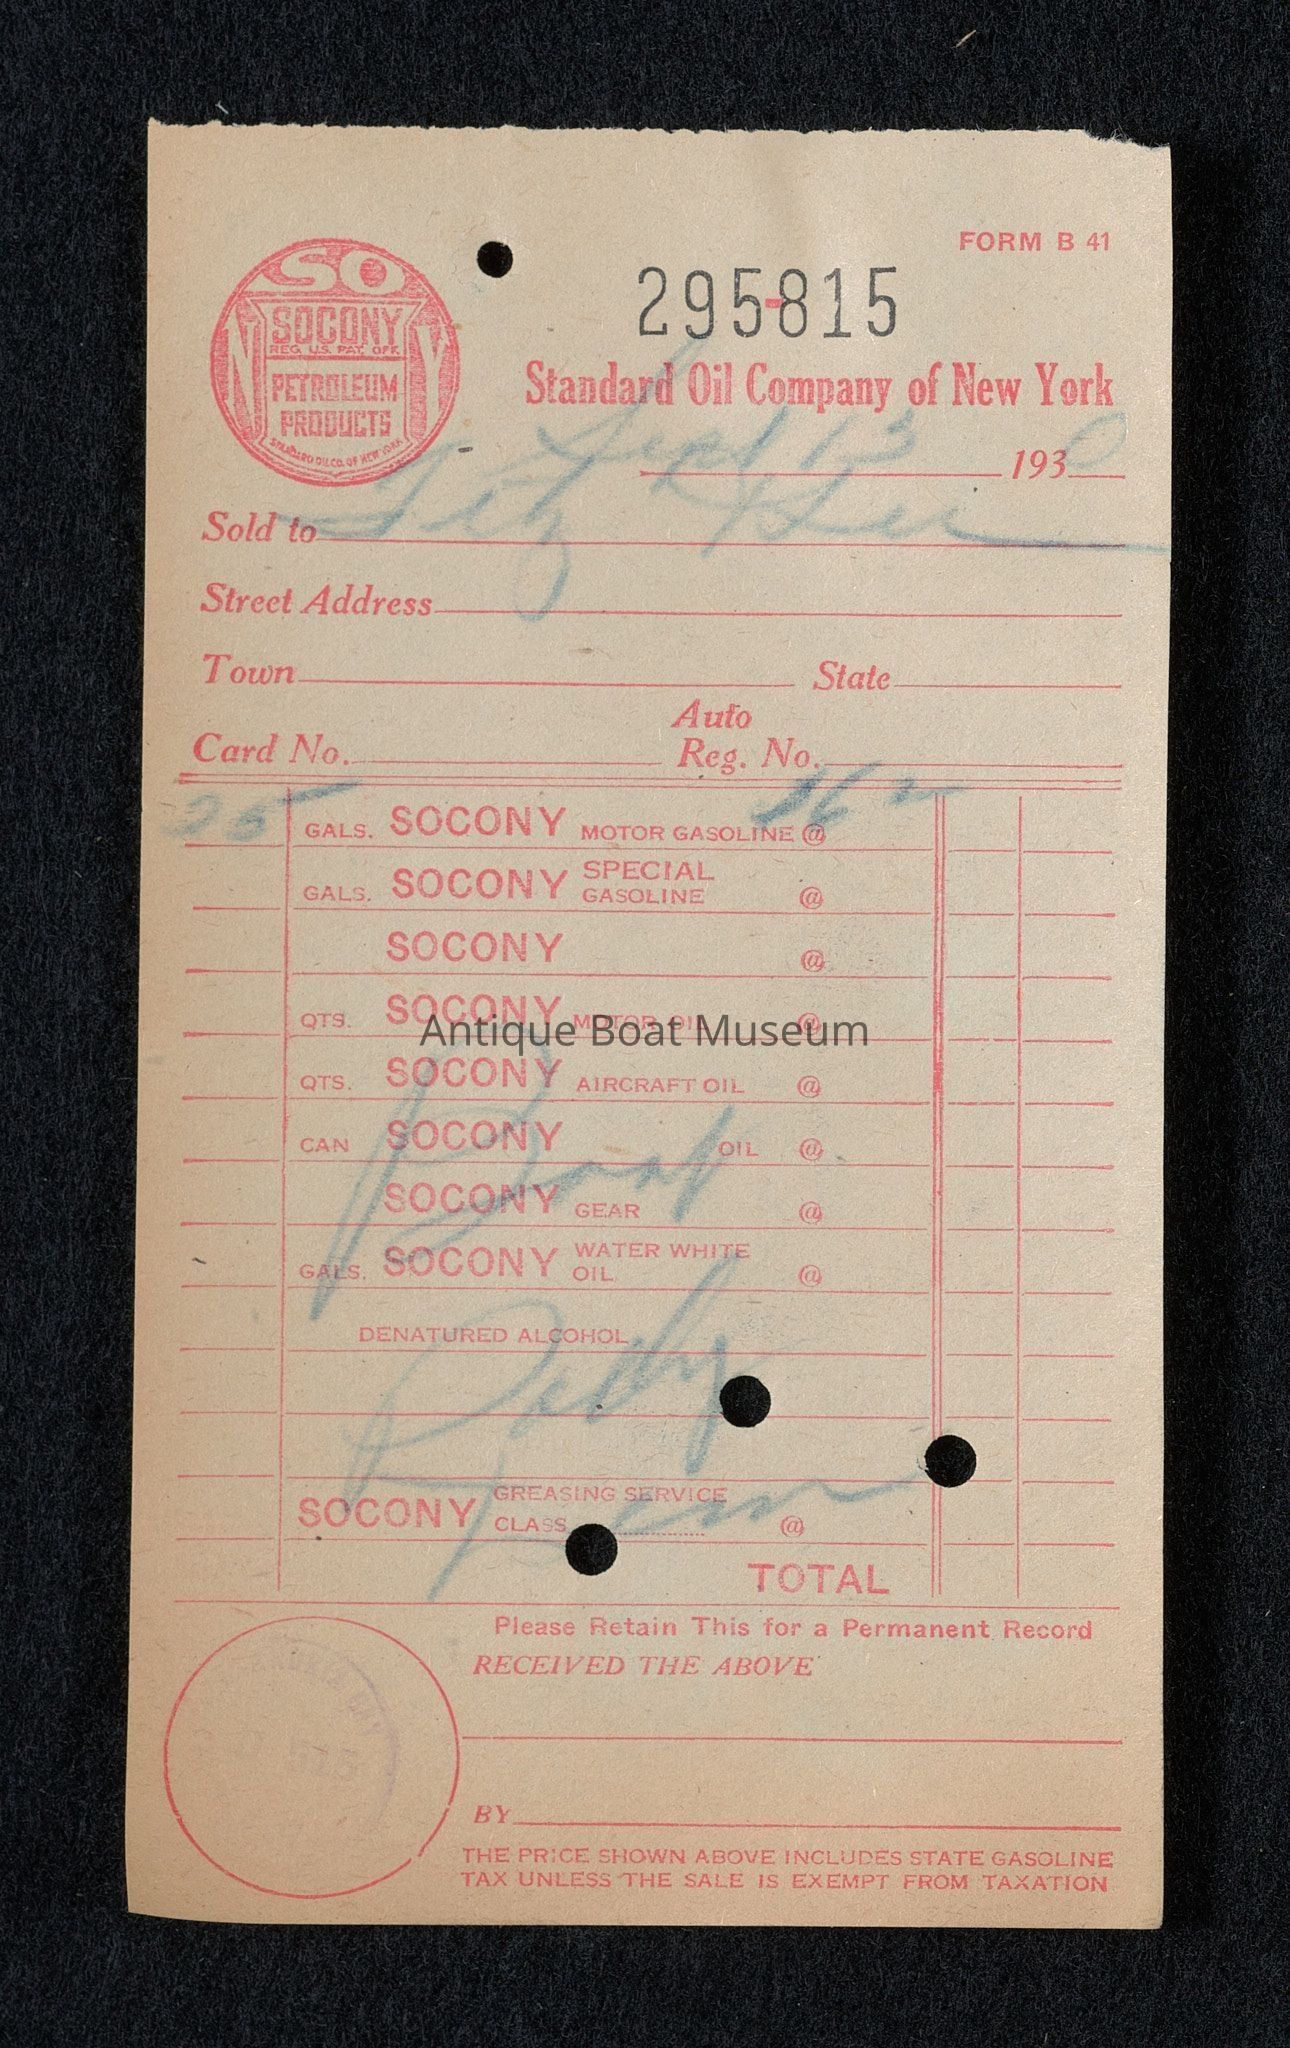 FORM B 41
SO
SOCONY
REG. U.S. PAT. OFF.
PETROLEUM
PRODUCTS
STANDARD OIL CO. OF NEW YORK
N Y
295-815
Standard Oil Company of New York
Sept 13 1930
Sold to
Street Address
Town State
Auto
Card No. Reg. No.
25 GALS. SOCONY MOTOR GASOLINE @ 16
GALS. SOCONY SPECIAL GASOLINE @
SOCONY @
QTS. SOCONY MOTOR OIL @
Antique Boat Museum
QTS. SOCONY AIRCRAFT OIL @
CAN SOCONY OIL @
Boat
SOCONY GEAR @
GALS. SOCONY WATER WHITE OIL @
DENATURED ALCOHOL
SOCONY GREASING SERVICE
CLASS @
TOTAL
Please Retain This for a Permanent Record
RECEIVED THE ABOVE
BY
THE PRICE SHOWN ABOVE INCLUDES STATE GASOLINE
TAX UNLESS THE SALE IS EXEMPT FROM TAXATION